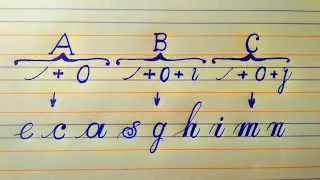 A B C
/ + O / + O + i / + O + j
e c a s g h i m n